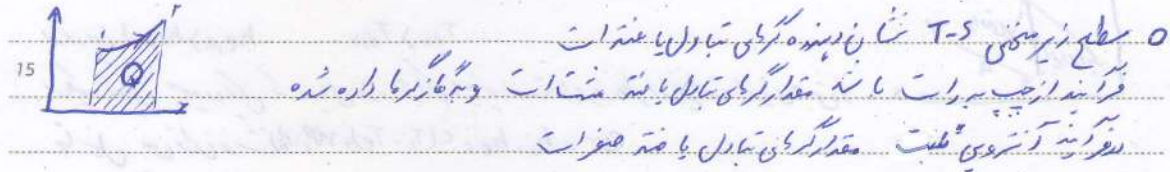 o سطح زیر منحنی T-S نشان دهنده گرمای تبادل یافته است
15
Q
فرآیند از چپ به راست باشد مقدار گرمای تبادل یافته مثبت است و به گاز گرما داده شده
در فرآیند آنتروپی ثابت مقدار گرمای تبادل یافته صفر است